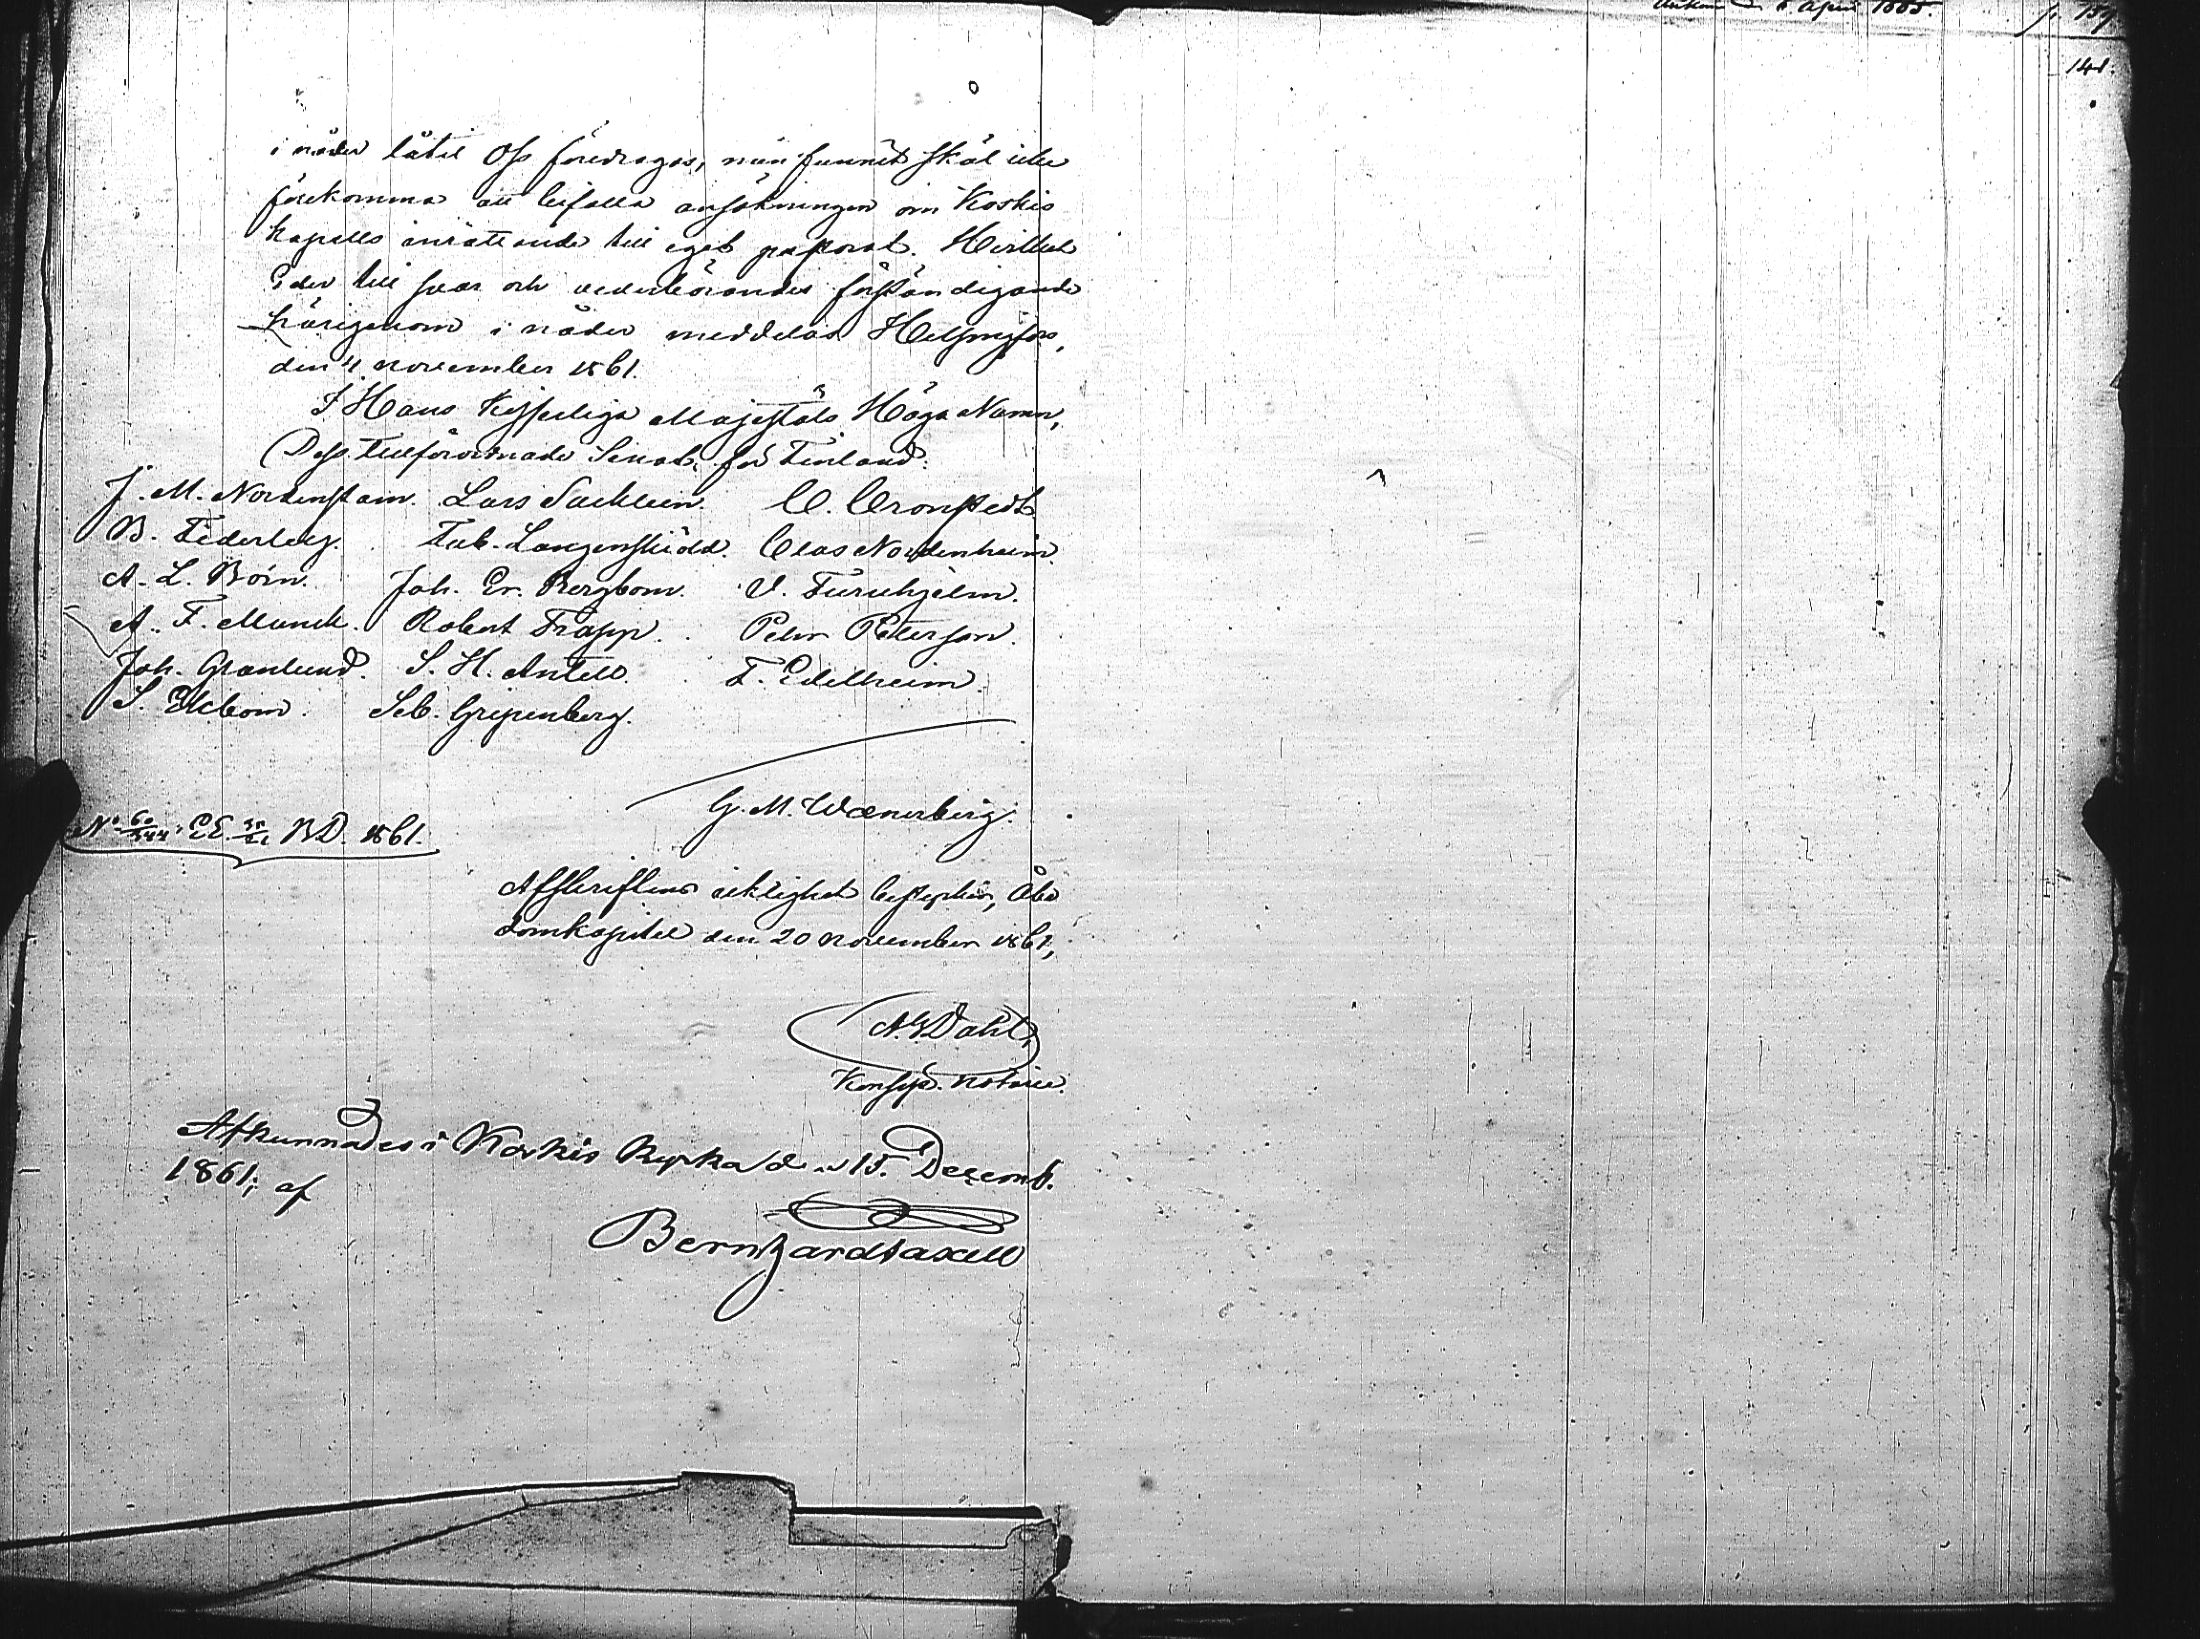 Ankom d. 6 April 1865.
p. 159
141.
i nåder låtit Oss föredragas, män funnit skäl icke
förekomma att bifalla ansökningen om Koskis
kapells inrättande till eget pastorat. Hvilket
Eder till svar och vederbörandes förständigande
härigenom i nåder meddelas. Helsingfors,
den 4 november 1861.
I Hans Kejserliga Majestäts Höga Namn,
Dess tillförordnade Senat för Finland:
J. M. Nordenstam. Lars Sacklein. C. Cronstedt.
B. Federley. Fab. Langenskiöld. Clas Nordenheim.
A. L. Born. Joh. Er. Bergbom. V. Furuhjelm.
A. F. Munck. Robert Trapp. Peter Peterson.
Joh. Granlund. S. H. Antell. F. Edelheim.
S. Ekbom. Seb. Gripenberg.
G. M. Wænerberg.
No 60/344 E.E. 35/21 B.D. 1861.
Afskriftens riktighet bestyrker, Åbo
domkapitel den 20 november 1861,
A. G. Dahl,
Konsist. notarie.
Afkunnades i Koskis Kyrka den 15. Decemb.
1861; af
Bernhard Taxell